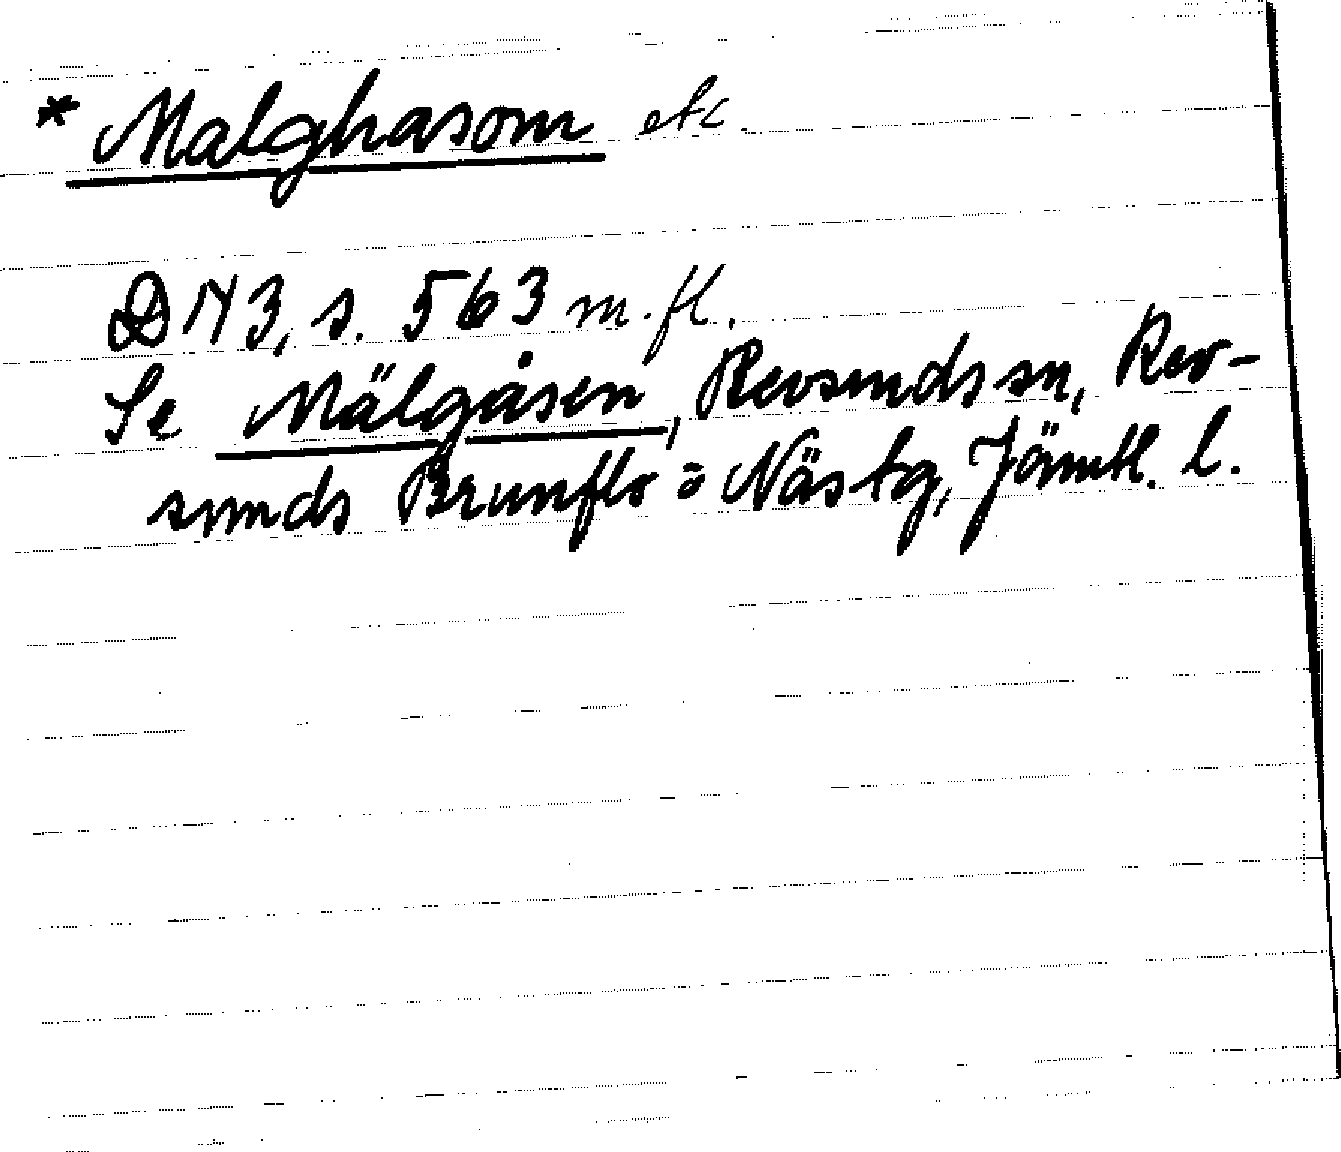 * Malghasom etc
DN 3, s. 563 m.fl.
Se Mälgåsen, Revsunds sn, Rev-
sunds Brunflo o Näs tg, Jämtl. l.